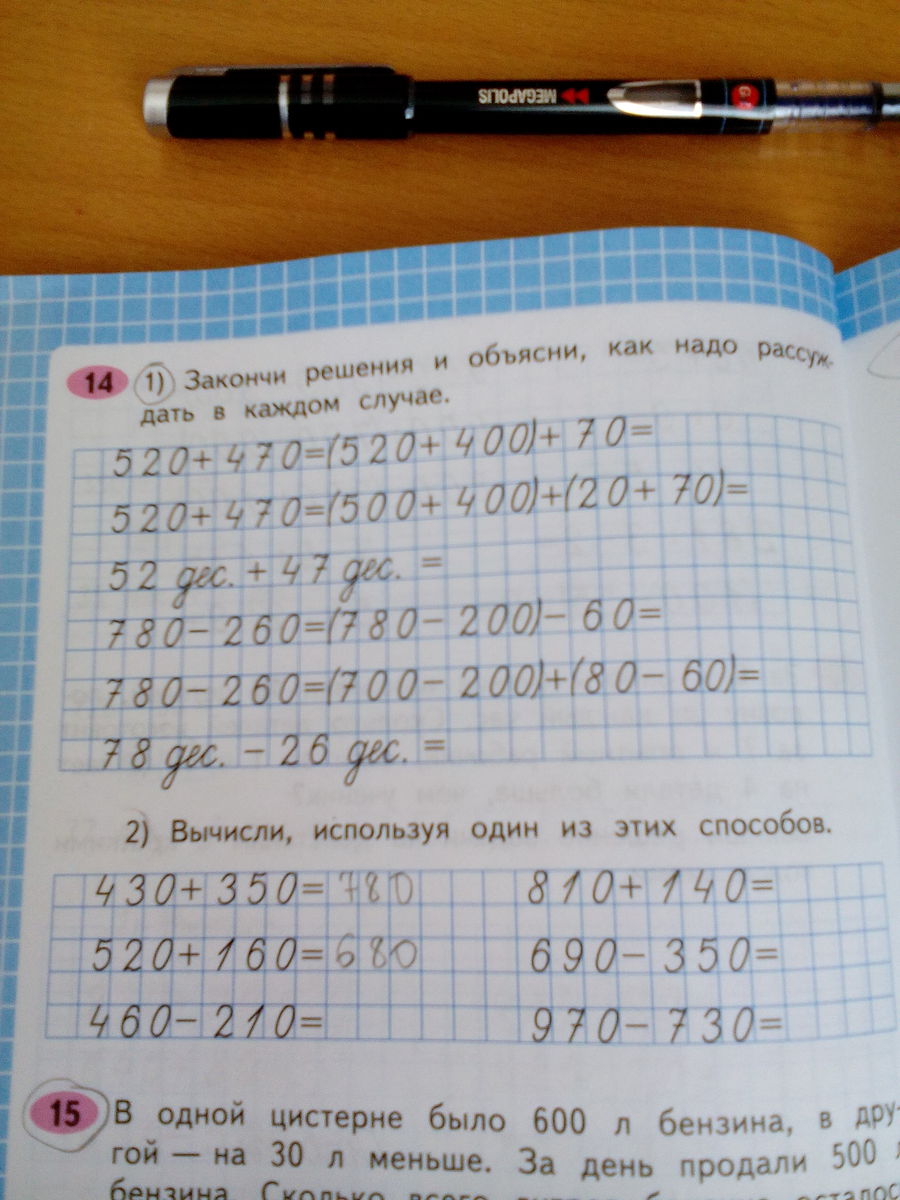 MEGAPOLIS
14 1) Закончи решения и объясни, как надо рассуж-
дать в каждом случае.
520+470=(520+400)+70=
520+470=(500+400)+(20+70)=
52 дес. + 47 дес. =
780-260=(780-200)-60=
780-260=(700-200)+(80-60)=
78 дес. - 26 дес. =
2) Вычисли, используя один из этих способов.
430+350=780 810+140=
520+160=680 690-350=
460-210= 970-730=
15 В одной цистерне было 600 л бензина, в дру-
гой — на 30 л меньше. За день продали 500 л
бензина. Сколько всего